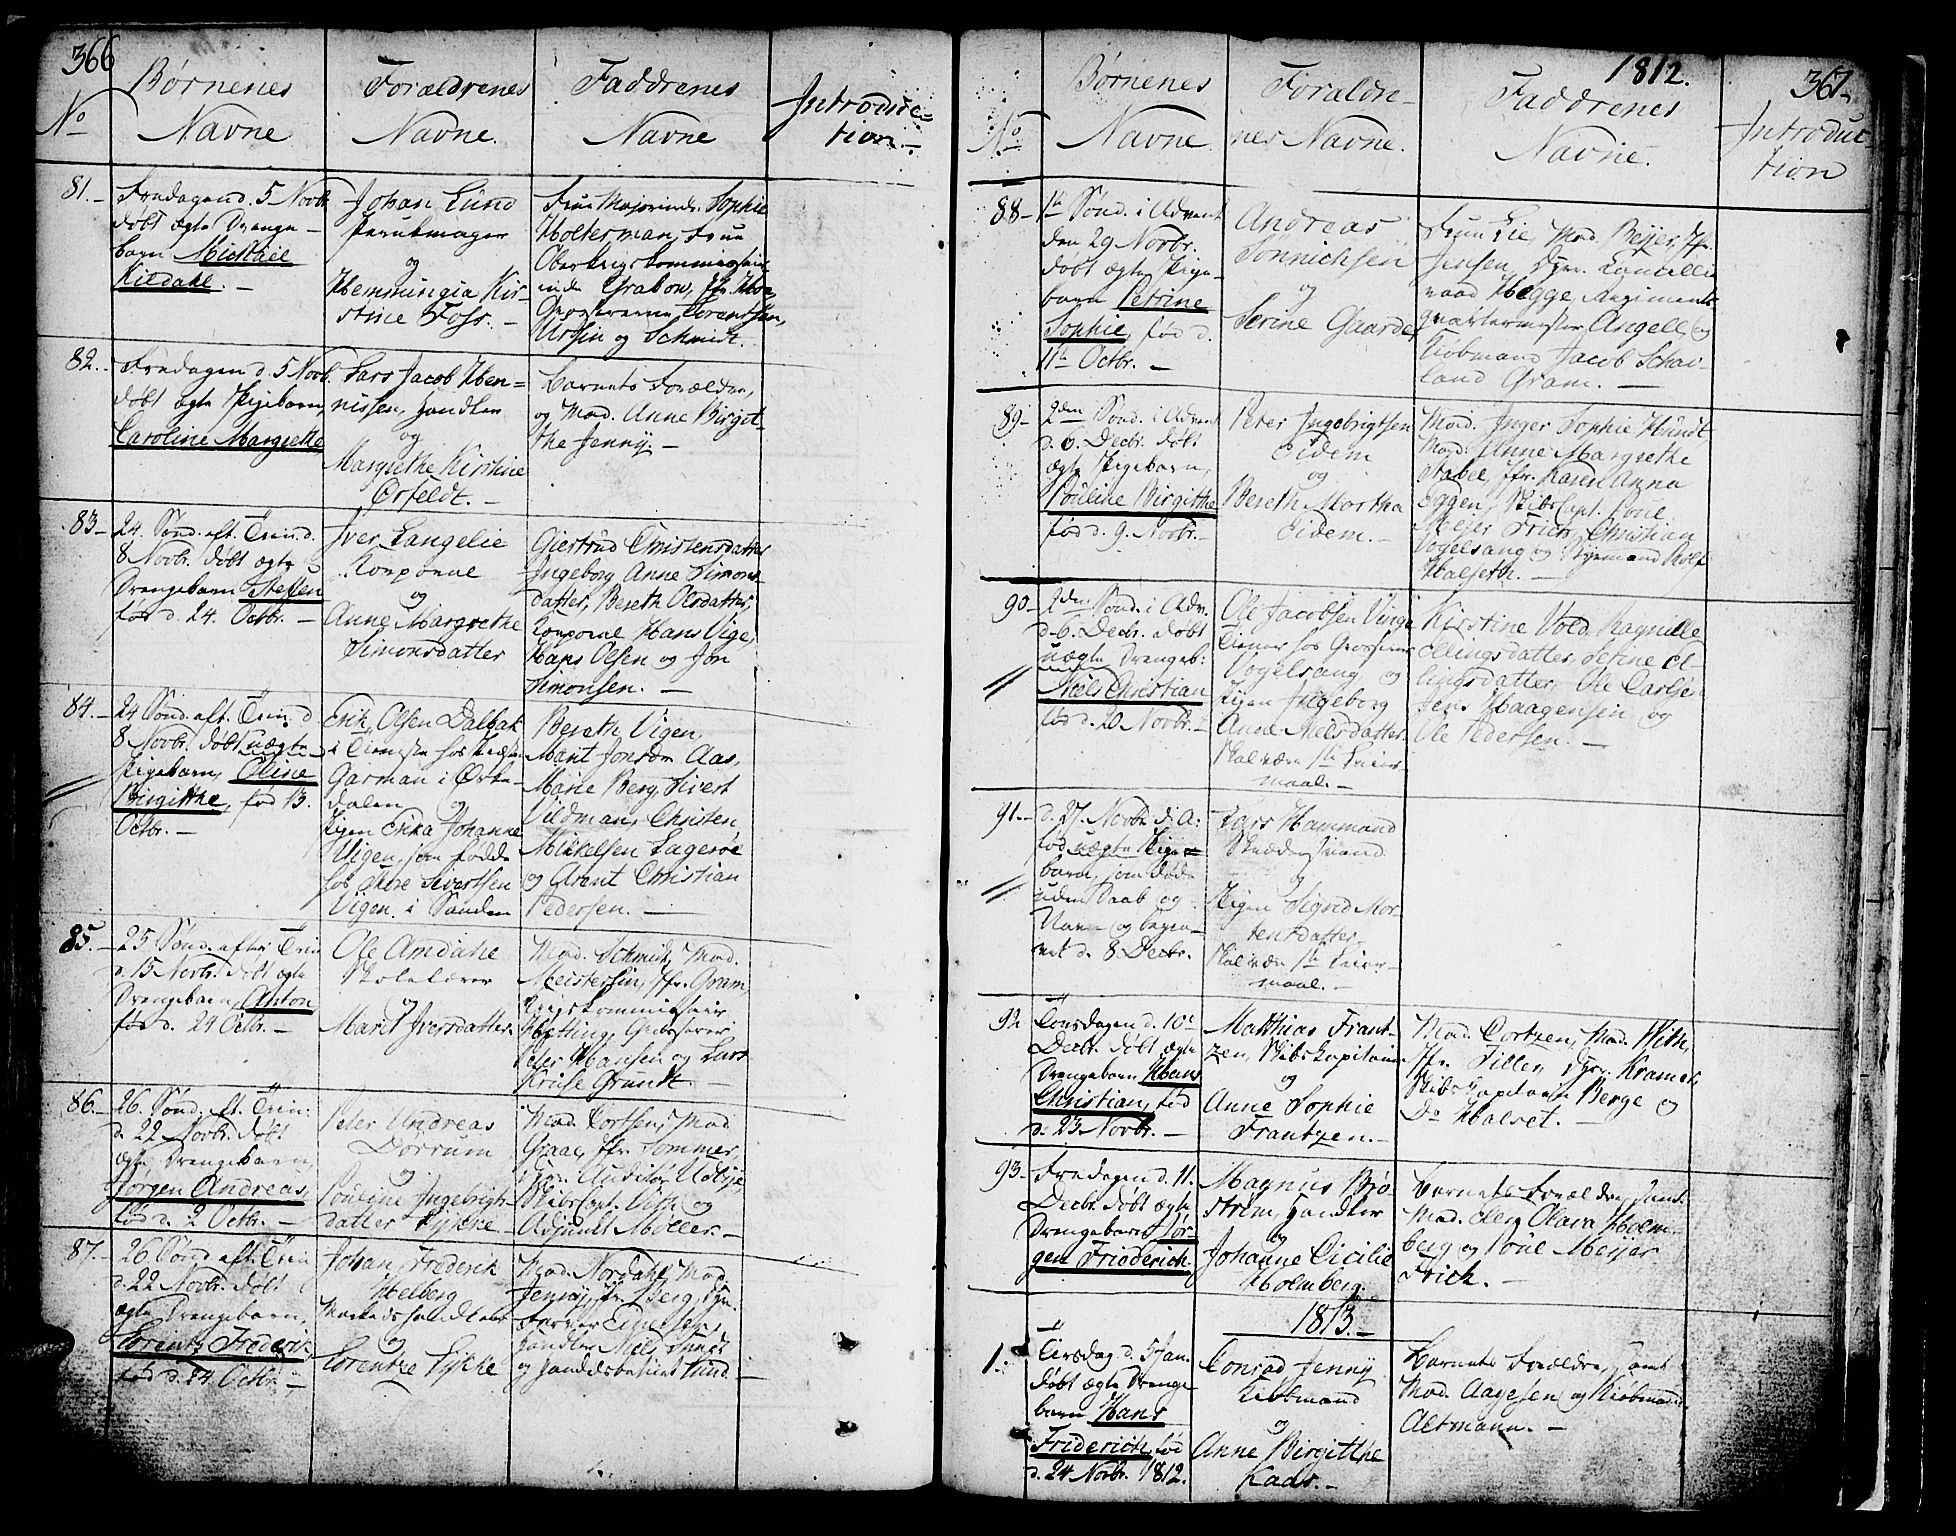 366
No
Børnenes
Navne
Forældrenes
Navne.
Faddrenes
Navne
Introduc=
tion.
81.
Fredagen d. 5 Novbr.
døbt ægte Drenge-
barn Michael
Kildahl. -
Johan Lund
Parukmager
og
Hemmingia Kir-
stine Foss. -
Frue Majorinde Sophie
Holterman, Frue
Oberkrigskommissair-
inde Grabow, Hr.
Grossererne Lorentzen,
Ursin og Schmidt.
82.
Fredagen d. 5 Novb.
døbt ægte Pigebarn,
Caroline Margrethe
Lars Jacob Hen=
nissen, Handler
og
Margrethe Kirstine
Ørfeldt. -
Barnets Forældre,
og Mad. Anne Birgit-
the Jenny. -
83
24. Sønd. eft. Trin. d.
8 Novbr. døbt ægte
Drengebarn Steffen
fød d. 24. Octbr. -
Iver Langelie
Korporal
og
Anne Margrethe
Simonsdatter
Giertrud Christensdatter
Ingeborg Anne Simons-
datter, Bereth Olsdatter,
Korporal Hans Vige,
Hans Olsen og Jon
Simonsen. -
84.
24 Sønd. eft. Trin. d
8 Novbr. døbt uægte
Pigebarn, Oline
Birgitthe, fød 13.
Octbr. -
Erik Olsen Dalbak
i Tieneste hos
Garman i Ørke-
dalen og
Pigen Erika Johanne
Vigen, som fødde
hos Sivertsen
Vigen i Sanden
Bereth Vigen,
Marit Jonsdr Aas,
Marie Berg, Sivert
Vildman, Christen
Mikkelsen Lagerøe
og Arent Christian
Pedersen. -
85.
25 Sønd. efter Trin
d. 15 Novbr. døbt ægte
Drengebarn, Anton
fød d. 24 Octbr. -
Ole Amdahl
Skolelærer
og
Marit Iversdatter.
Mad. Schmidt, Mad.
Meistersin, Jfr. Gram,
Krigskommissair
Hetting, Grosserer
Peter Hansen og Lars
Kruse Grundt. -
86.
26. Sønd. eft. Trin:
d. 22 Novbr. døbt
ægte Drengebarn,
Jørgen Andreas,
fød d. 2 Octbr. -
Peter Andreas
Dørrum
og
Pauline Ingebrigts-
datter Lykke
Mad. Cortsen, Mad
Graae, Jfr. Sommer,
Auditør Udbye,
Skibscpt. Vith og
Adjunct Møller. -
87.
26 Sønd. eft. Trin
d. 22 Novbr. døbt
ægte Drengebarn,
Lorents Frederik
fød d. 24 Octbr. -
Johan Frederik
Helberg
og
Lorentze Lykke
Mad. Nordahl, Mad
Jensen, Jfr. Berg,
Handler Niels
og Handelsbetient Lund. -
1812.
367.
No
Børnenes
Navne.
Foraldre-
nes Navne.
Faddrenes
Navne.
Introduc-
tion
88
1te Sønd. i Advent
den 29 Novbr.
døbt ægte Pige-
barn Petrine
Sophie, fød d.
11te Octbr. -
Andreas
Sonnichsen
og
Serine Gaarder
Frue Lie, Mad. Beyer, Jfr.
Jensen, Cancellie
raad Hegge, Regiments-
quartermester Angell og
Kiøbmand Jacob Schav-
land Gram. -
89
2den Sønd. i Advent
d. 6. Decbr. døbt
ægte Pigebarn,
Pauline Birgitthe
fød d. 9. Novbr. -
Peter Ingebrigtsen
Eidem
og
Bereth Martha
Eidem. -
Mad. Inger Sophie Hundt,
Mad: Anne Margrethe
Stabel, Jfr. Karen Anna
Eggen, Skibscpt. Poul
Meyer Frich, Christian
Vogelsang og Styrmand Rolf
Halseth. -
90
2den Sønd. i Adv.
d. 6. Decbr. døbt
uægte Drengeb:
Niels Christian
fød d. 20 Novbr. -
Ole Jacobsen Vinge
tiener hos Grosserer
Vogelsang og
Pigen Ingeborg
Anne Nielsdatter.
Skal være 1te Leier-
maal. -
Kirstine Vold, Ragnille
Ellingsdatter, Serine El-
lingsdatter, Ole Carlsen
Haagensen og
Ole Pedersen. -
91.
d. 27. Novbr. d. A:
fød uægte Pige-
barn, som døde
uden Daab og
Navn og begra-
vet d. 8 Decbr.
Lars Hammand
Skrædersvend
og
Pigen Sigrid Mor-
tensdatter.
Skal være 1te Leier-
maal. -
92
Torsdagen d. 10de
Decbr. døbt ægte
Drengebarn Hans
Christian, fød
d. 23 Novbr. -
Matthias Frant-
zen, Skibskapitain
og
Anne Sophie
Frantzen. -
Mad. Cortzen, Mad. With,
Jfr. Tiller, Hr. Kramer,
Skibskapitain Berge og
Do Halset. -
93.
Fredagen d. 11.
Decbr. døbt ægte
Drengebarn Jør-
gen Friederich.
Magnus Brø-
strøm, Handler
og
Johanne Cicilie
Holmberg.
Barnets Forældre, samt
Mad. Olava Holm-
berg og Poul Meyer
Frich. -
1813. -
1.
Tirsdag d. 5 Jan.
døbt ægte Drenge-
barn Hans
Friderich, fød
d. 24 Novbr. 1812.
Conrad Jenny
Kiøbmand
og
Anne Birgitthe
Kaas. -
Barnets Forældre, samt
Mad. Aagesen og Kiøbmand
Altmann. -